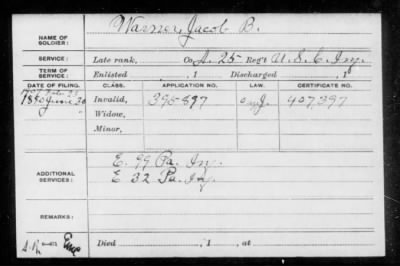 NAME OF SOLDIER: Warner, Jacob B.
SERVICE: Late rank, Co. A. 25 Reg't U.S.C. Inf.
TERM OF SERVICE: Enlisted , 1 Discharged , 1
DATE OF FILING. CLASS. APPLICATION NO. LAW. CERTIFICATE NO.
1880 June 30 Invalid, 395897 407,397
Widow,
Minor,
ADDITIONAL SERVICES: E. 99 Pa. Inf.
E 32 Pa. Inf.
REMARKS:
Died , 1 , at